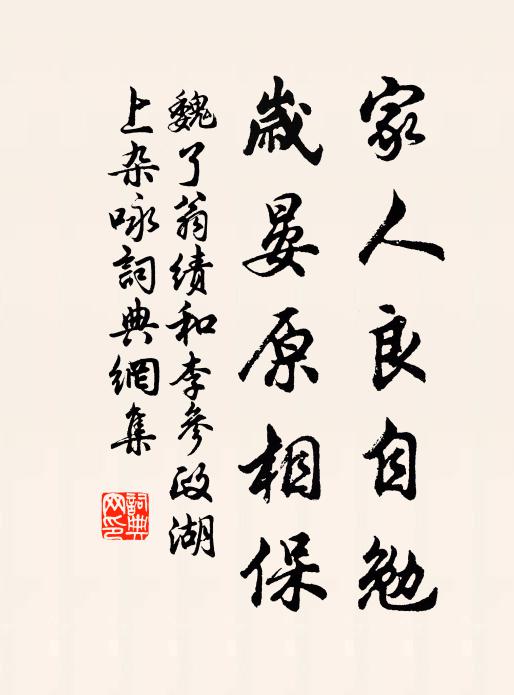 家人良自勉
歲晏原相保
魏了翁績和李參政湖
上杂咏詞典網集
詞典
网印